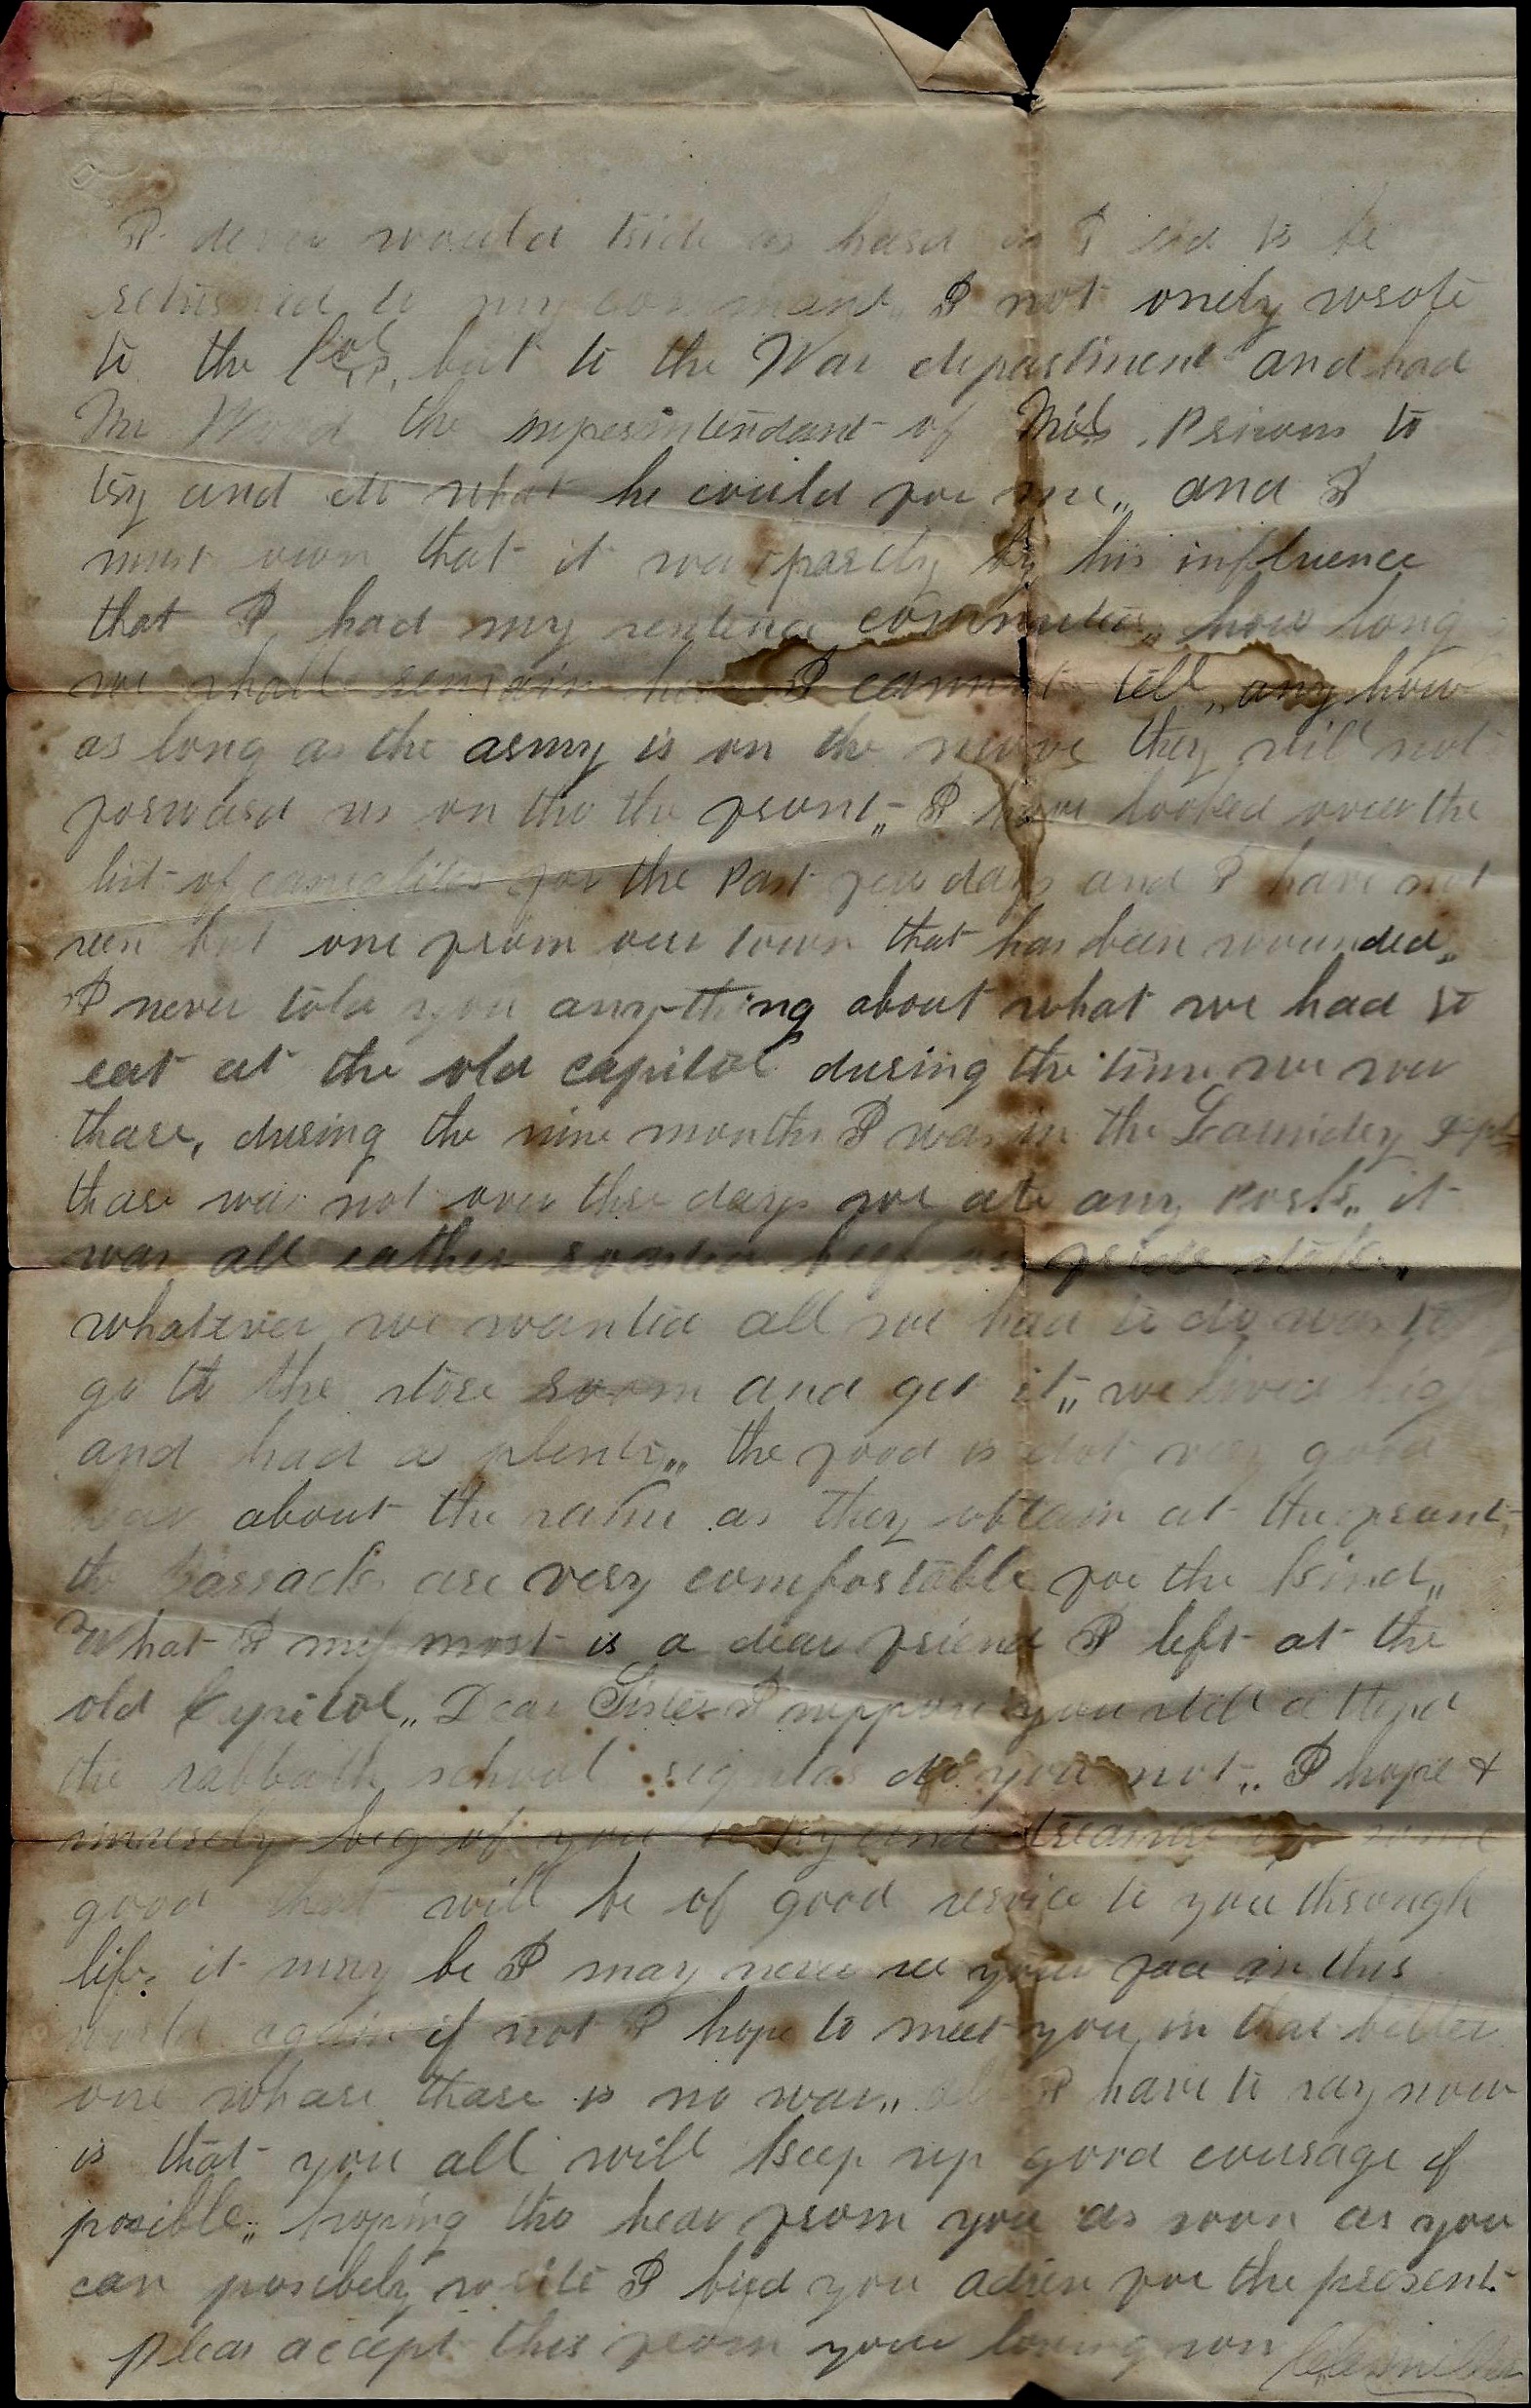 I never would tride as hard as I did to be
returned to my command,, I not onely wrote
to the Col, but to the War department and had
Mr Wood the superintendant of Mil. Prisons to
try and do what he could for me,, and I
must own that it was partly by his influence
that I had my sentence commuted,, how long
we shall remain here I cannot tell,, any how
as long as the army is on the move they will not
forward us on tho the front,, I have looked over the
list of causalities for the Past few days and I have not
seen but one from our town that has been wounded,,
I never told you any-thing about what we had to
eat at the old capitol during the time we wer
thare, during the nine months I was in the Laundry dept
thare was not over thre days we ate any Pork,, it
was all eather roasted beef or fride
whatever we wanted all we had to do was to
go to the store room and get it,, we lived high
and had a plenty,, the food is not very good
hear about the same as they obtain at the front,
the barracks are very comfortable for the kind,,
What I miss most is a dear friend I left at the
old Capitol,, Dear Sister I suppose you still attend
the sabbath school regular do you not,, I hope &
sincerely beg of you to try and treasure up some
good that will be of good service to you through
life. it may be I may never see your face in this
world again if not I hope to meet you in that better
one whare thare is no war,, all I have to say now
is that you all will keep up good courage if
posible,, hoping tho hear from you as soon as you
can posibely write I bid you adieu for the present
Pleas accept this from your loving son